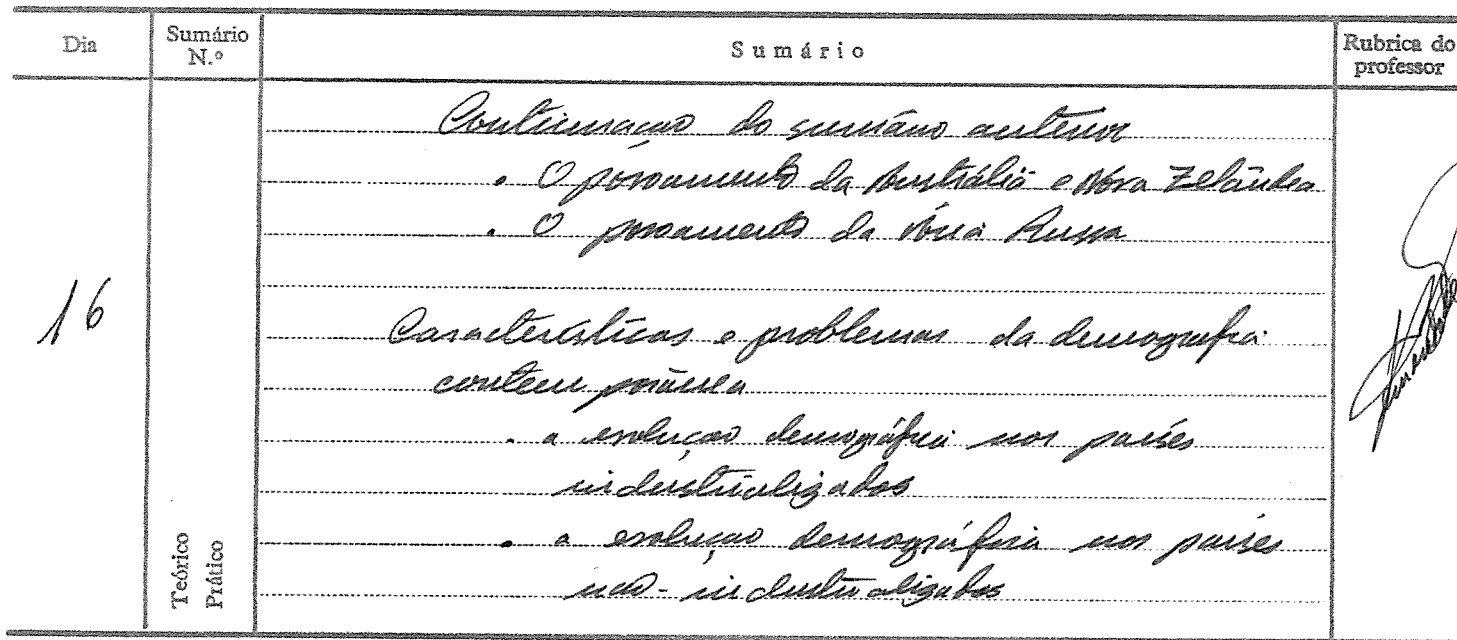 Dia
Sumário N.º
Sumário
Rubrica do professor
16
Teórico
Prático
Continuação do sumário anterior
• O povoamento da Austrália e Nova Zelândia
• O povoamento da Ásia Russa
Características e problemas da demografia
contemporânea
• a evolução demográfica nos países
industrializados
• a evolução demográfica nos países
não-industrializados